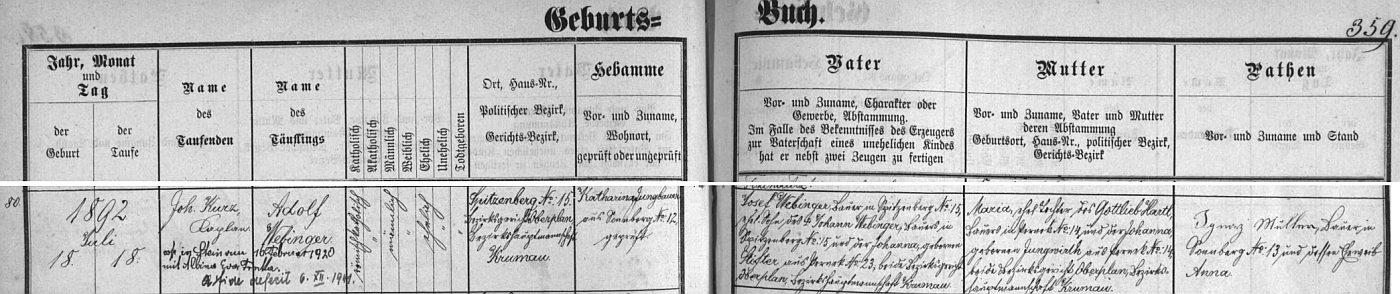 Geburts=
Buch.
359.
Jahr, Monat
und
Tag
der
Geburt
der
Taufe
Name
des
Taufenden
Name
des
Täuflings
Katholisch
Akatholisch
Männlich
Weiblich
Ehelich
Unehelich
Todtgeboren
Ort, Haus-Nr.,
Politischer Bezirk,
Gerichts-Bezirk,
Hebamme
Vor- und Zuname,
Wohnort,
geprüft oder ungeprüft
Vater
Vor- und Zuname, Charakter oder
Gewerbe, Abstammung.
Im Falle des Bekenntnisses des Erzeugers
zur Vaterschaft eines unehelichen Kindes
hat er nebst zwei Zeugen zu fertigen
Mutter
Vor- und Zuname, Vater und Mutter
deren Abstammung
Geburtsort, Haus-Nr., politischer Bezirk,
Gerichts-Bezirk
Pathen
Vor- und Zuname und Stand
80
1892
Juli
18. 18.
Joh. Kurz,
Caplan
Adolf
Webinger
16. Februar 1920
6. XII. 1941.
männlich
ehelich
Spitzenberg No. 15.
Bezirksgericht Oberplan,
Bezirkshauptmannschaft
Krumau.
Katharina Jungbauer
aus Sonnberg No. 12,
geprüft
Josef Webinger, Bauer in Spitzenberg No. 15,
ehel. Sohn des Johann Webinger, Bauers in
Spitzenberg No. 15 und der Johanna, geborenen
Stifter aus Perneck No. 23, beide Bezirksgericht
Oberplan, Bezirkshauptmannschaft Krumau.
Maria, ehel. Tochter des Gottlieb Hartl,
Bauers in Perneck No. 14 und der Johanna
geborenen Jungwirth aus Perneck No. 14,
beide Bezirksgericht Oberplan, Bezirks-
hauptmannschaft Krumau.
Ignaz Bauer in
Sonnberg No. 13 und dessen Eheweib
Anna